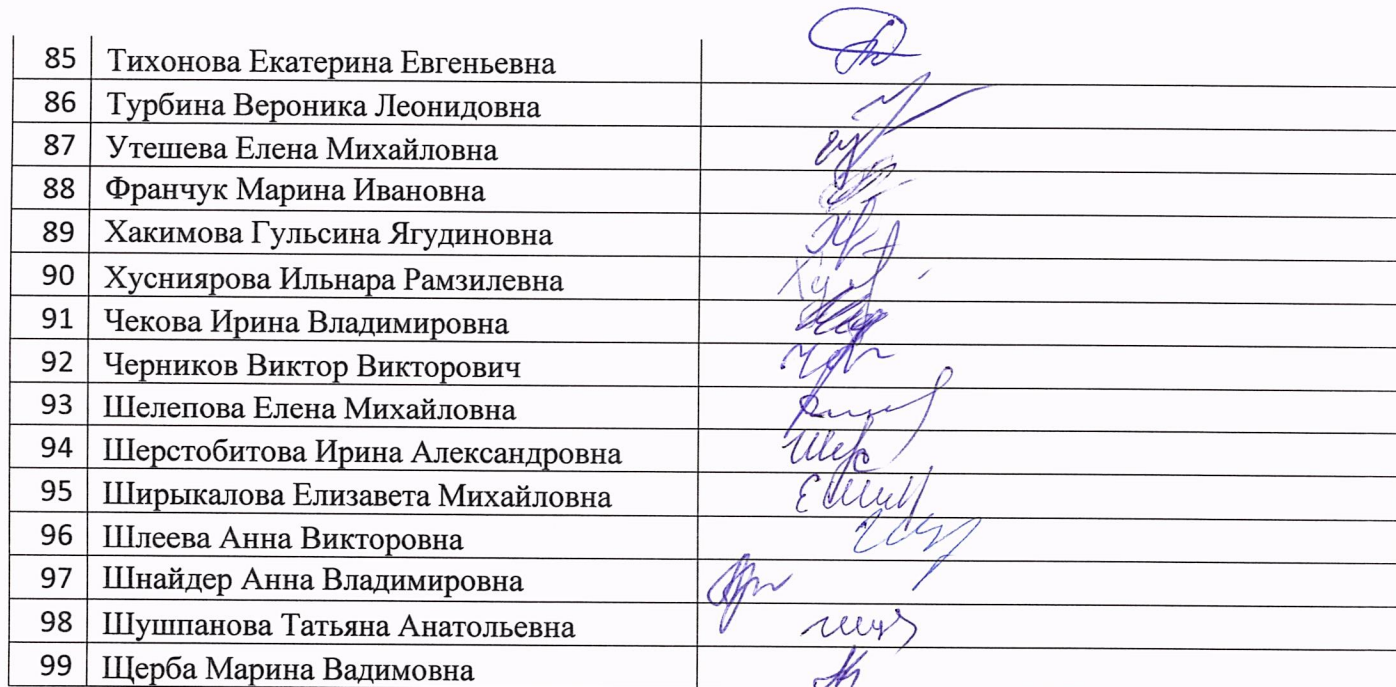 85 Тихонова Екатерина Евгеньевна
86 Турбина Вероника Леонидовна
87 Утешева Елена Михайловна
88 Франчук Марина Ивановна
89 Хакимова Гульсина Ягудиновна
90 Хусниярова Ильнара Рамзилевна
91 Чекова Ирина Владимировна
92 Черников Виктор Викторович
93 Шелепова Елена Михайловна
94 Шерстобитова Ирина Александровна
95 Ширыкалова Елизавета Михайловна
96 Шлеева Анна Викторовна
97 Шнайдер Анна Владимировна
98 Шушпанова Татьяна Анатольевна
99 Щерба Марина Вадимовна